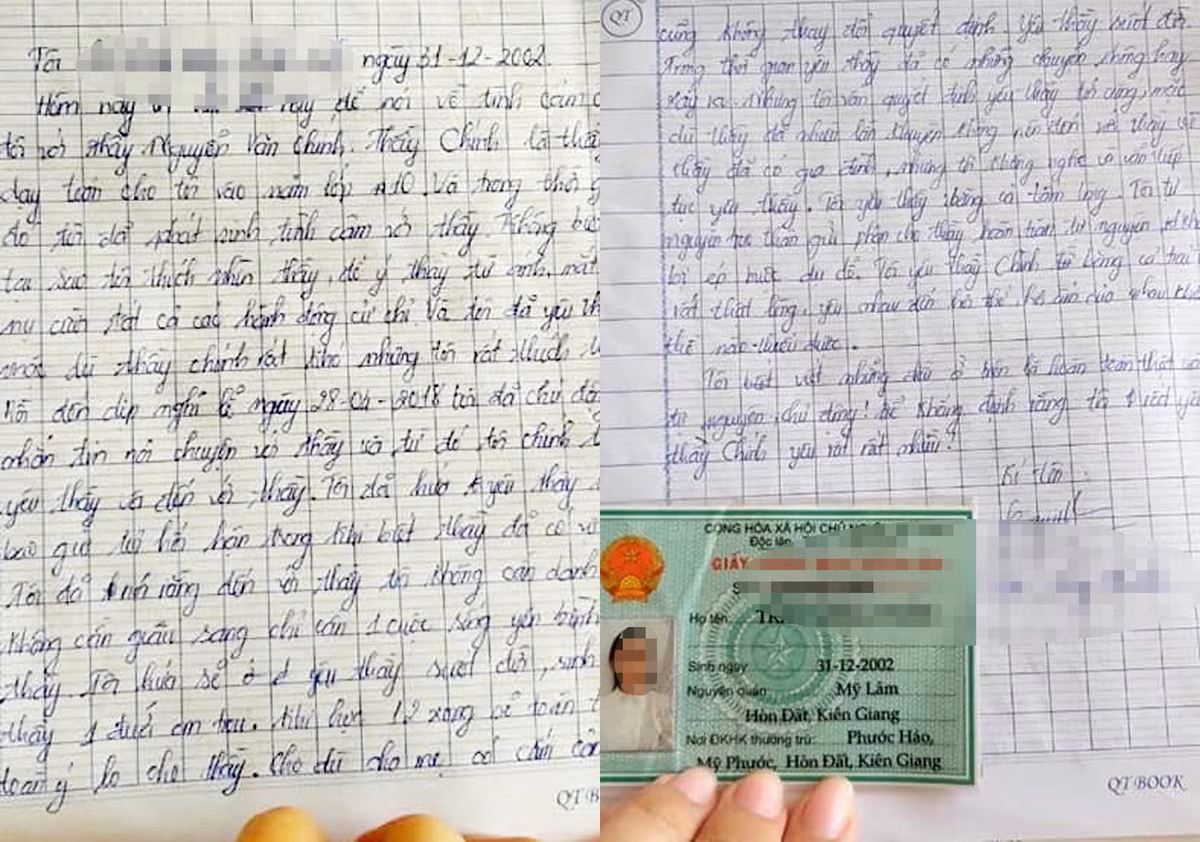 Tôi ngày 31-12-2002.
Hôm nay để nói về tình cảm
tôi với thầy Nguyễn Văn Chinh. Thầy Chính là thầy
dạy toán cho tôi vào năm lớp A10. Và trong thời
đó tôi đã phát sinh tình cảm với thầy. Không
tại sao tôi thích nhìn thầy, để ý thầy từ ánh mắt
nụ cười tất cả các hành động cử chỉ. Và tôi đã yêu
mặc dù thầy chính rất khó nhưng tôi rất thích
Tôi đến dịp nghỉ lễ ngày 28-04-2018 tôi đã chủ
nhắn tin nói chuyện với thầy và từ đó tôi chính
yêu thầy và đến với thầy. Tôi đã hứa yêu thầy
bao giờ hối hận trong khi biết thầy đã có
Tôi đã rằng đến với thầy tôi không cần danh
không cần giàu sang chỉ cần 1 cuộc sống yên bình
thầy. Tôi hứa sẽ ở yêu thầy suốt đời, sinh
thầy 1 đứa em học 12 xong sẽ toàn
toàn ý lo cho thầy. Cho dù cha mẹ có
QT B
QT
cũng không thay đổi quyết định yêu thầy suốt đời.
Trong thời gian yêu thầy đã có những chuyện không hay
xảy ra. Nhưng tôi vẫn quyết định yêu thầy tới cùng, mặc
dù thầy đã nhiều lần khuyên không nên đến với thầy
thầy đã có gia đình, nhưng tôi không nghe và vẫn tiếp
tục yêu thầy. Tôi yêu thầy bằng cả tấm lòng. Tôi tự
nguyện thân gửi phận cho thầy hoàn toàn tự nguyện
bị ép buộc dụ dỗ. Tôi yêu thầy Chính bằng cả trái
rất thật lòng, yêu nhau đến của nhau
thể nào thiếu được.
Tôi viết những điều ở trên là hoàn toàn thật
tự nguyện, chủ động! Để khẳng định rằng tôi yêu
thầy Chính yêu rất rất nhiều!
Kí tên
CỘNG HÒA XÃ HỘI CHỦ
Độc lập
GIẤY
Họ tên
Sinh ngày 31-12-2002
Nguyên quán Mỹ Lâm
Hòn Đất, Kiên Giang
Nơi ĐKHK thường trú: Phước Hảo,
Mỹ Phước, Hòn Đất, Kiên Giang
QT BOOK